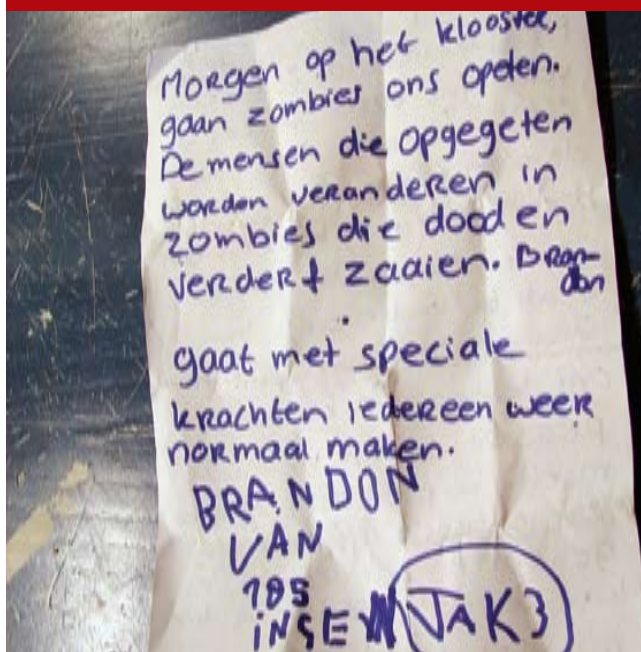 Morgen op het klooster,
gaan zombies ons opeten.
De mensen die opgegeten
worden veranderen in
zombies die dood en
verderf zaaien. Bran-
don
gaat met speciale
krachten iedereen weer
normaal maken.
BRANDON
VAN
INGE JAK3